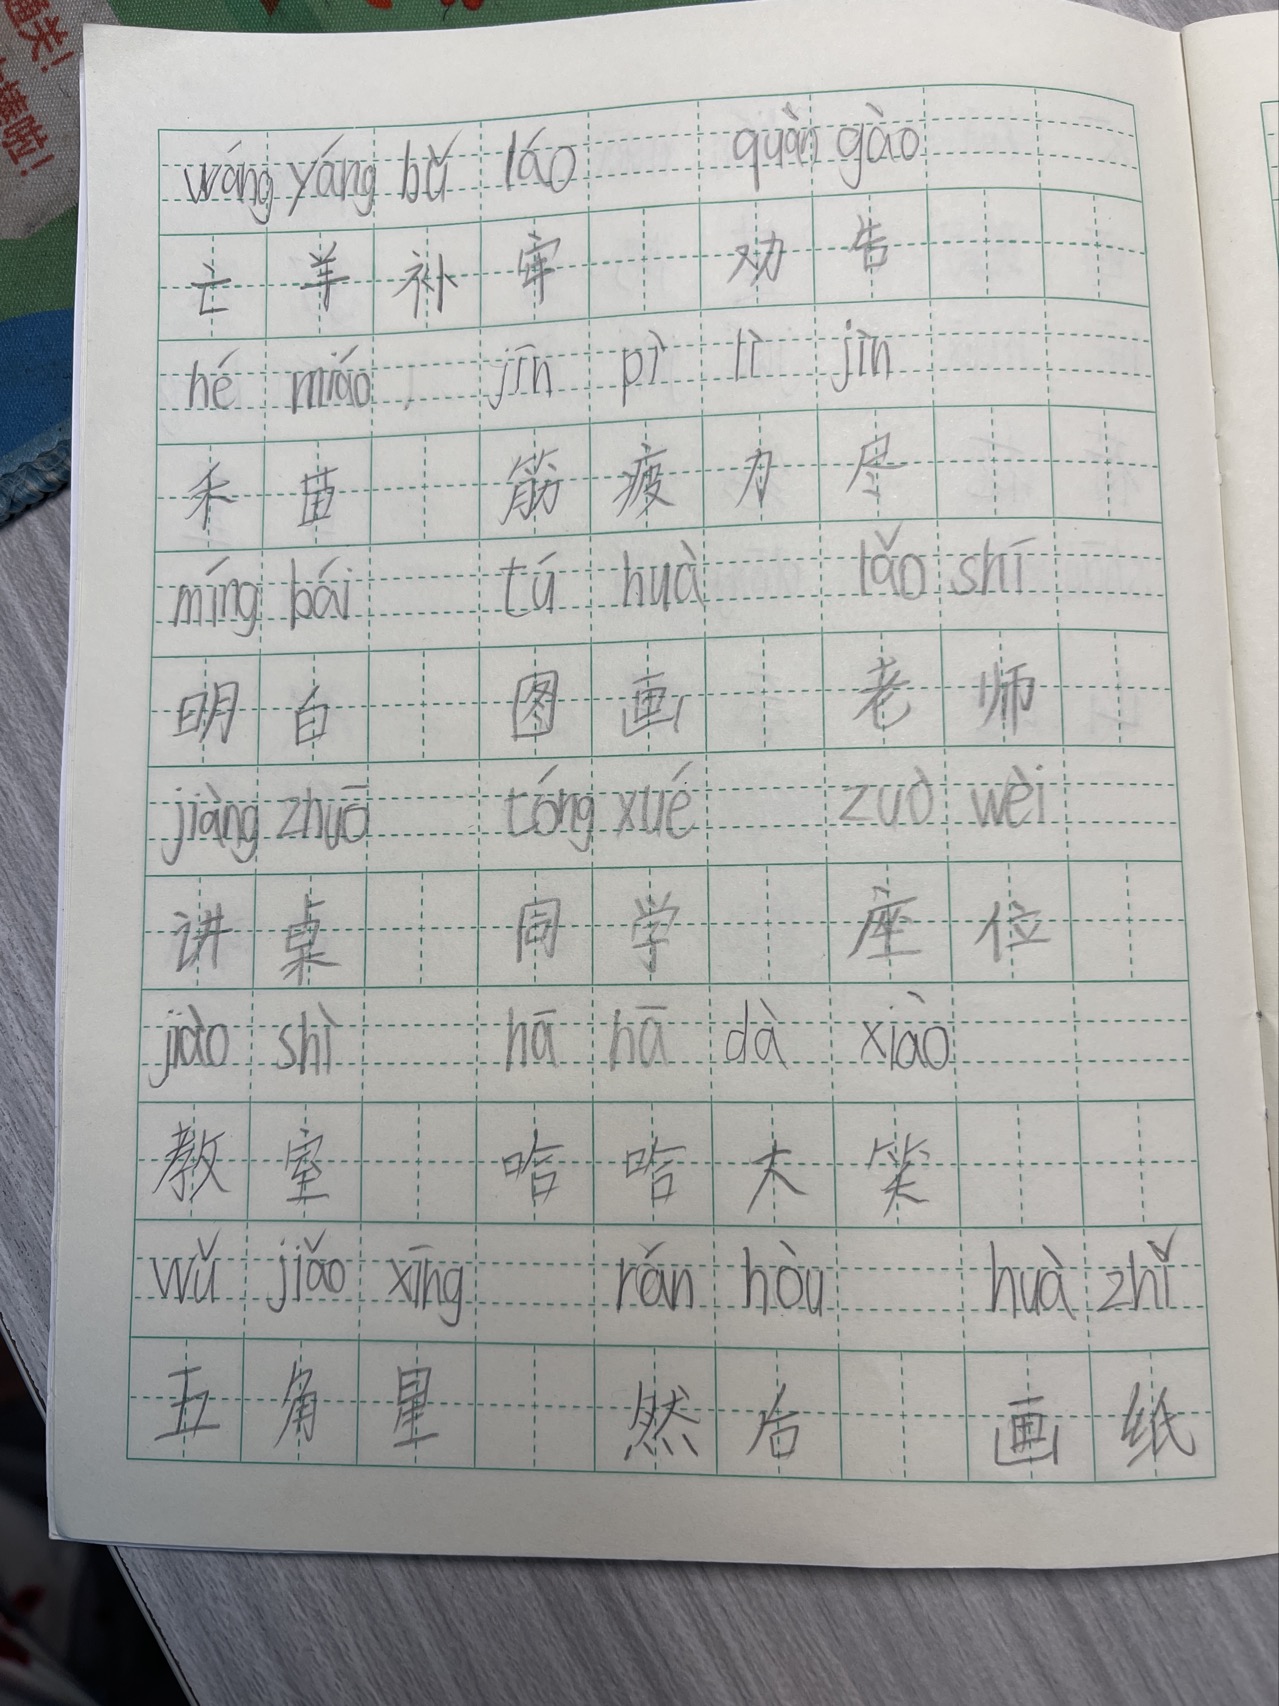 通关！
棒啦！
wáng yáng bǔ láo quàn gào
亡羊补牢 劝告
hé miáo jīn pì lì jìn
禾苗 筋疲力尽
míng bái tú huà lǎo shī
明白 图画 老师
jiàng zhuō tóng xué zuò wèi
讲桌 同学 座位
jiào shì hā hā dà xiào
教室 哈哈大笑
wǔ jiǎo xīng rán hòu huà zhǐ
五角星 然后 画纸